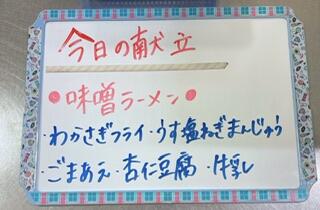 今日の献立
●味噌ラーメン●
・わかさぎフライ・うす塩ねぎまんじゅう
・ごまあえ・杏仁豆腐・牛乳